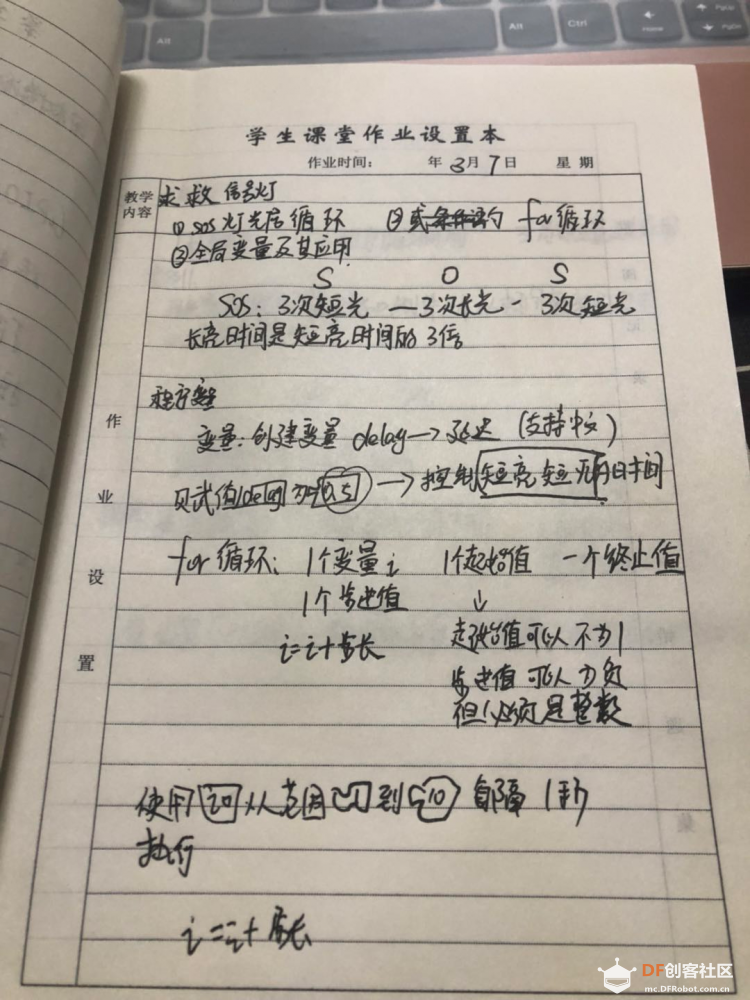 Alt
Alt
Ctrl
PgUp
PgDn
学生课堂作业设置本
作业时间: 年 3月 7日 星 期
教学内容
求救信号灯
① sos灯光店循环 ② for循环
③全局变量及其应用
S O S
SOS: 3次短光 — 3次长光 - 3次短光
长亮时间是短亮时间的3倍
作业设置
变量:创建变量 delay→延迟 (支持中文)
赋值 delay 为 0.5 → 控制 短亮短灭的时间
for循环: 1个变量i 1个起始值 一个终止值
1个步进值 ↓
i=i+步长 起始值可以不为1
步进值可以为负
但必须是整数
使用 i 从范围 1 到 10 每隔 1
执行
i=i+步长
DF创客社区
mc.DFRobot.com.cn